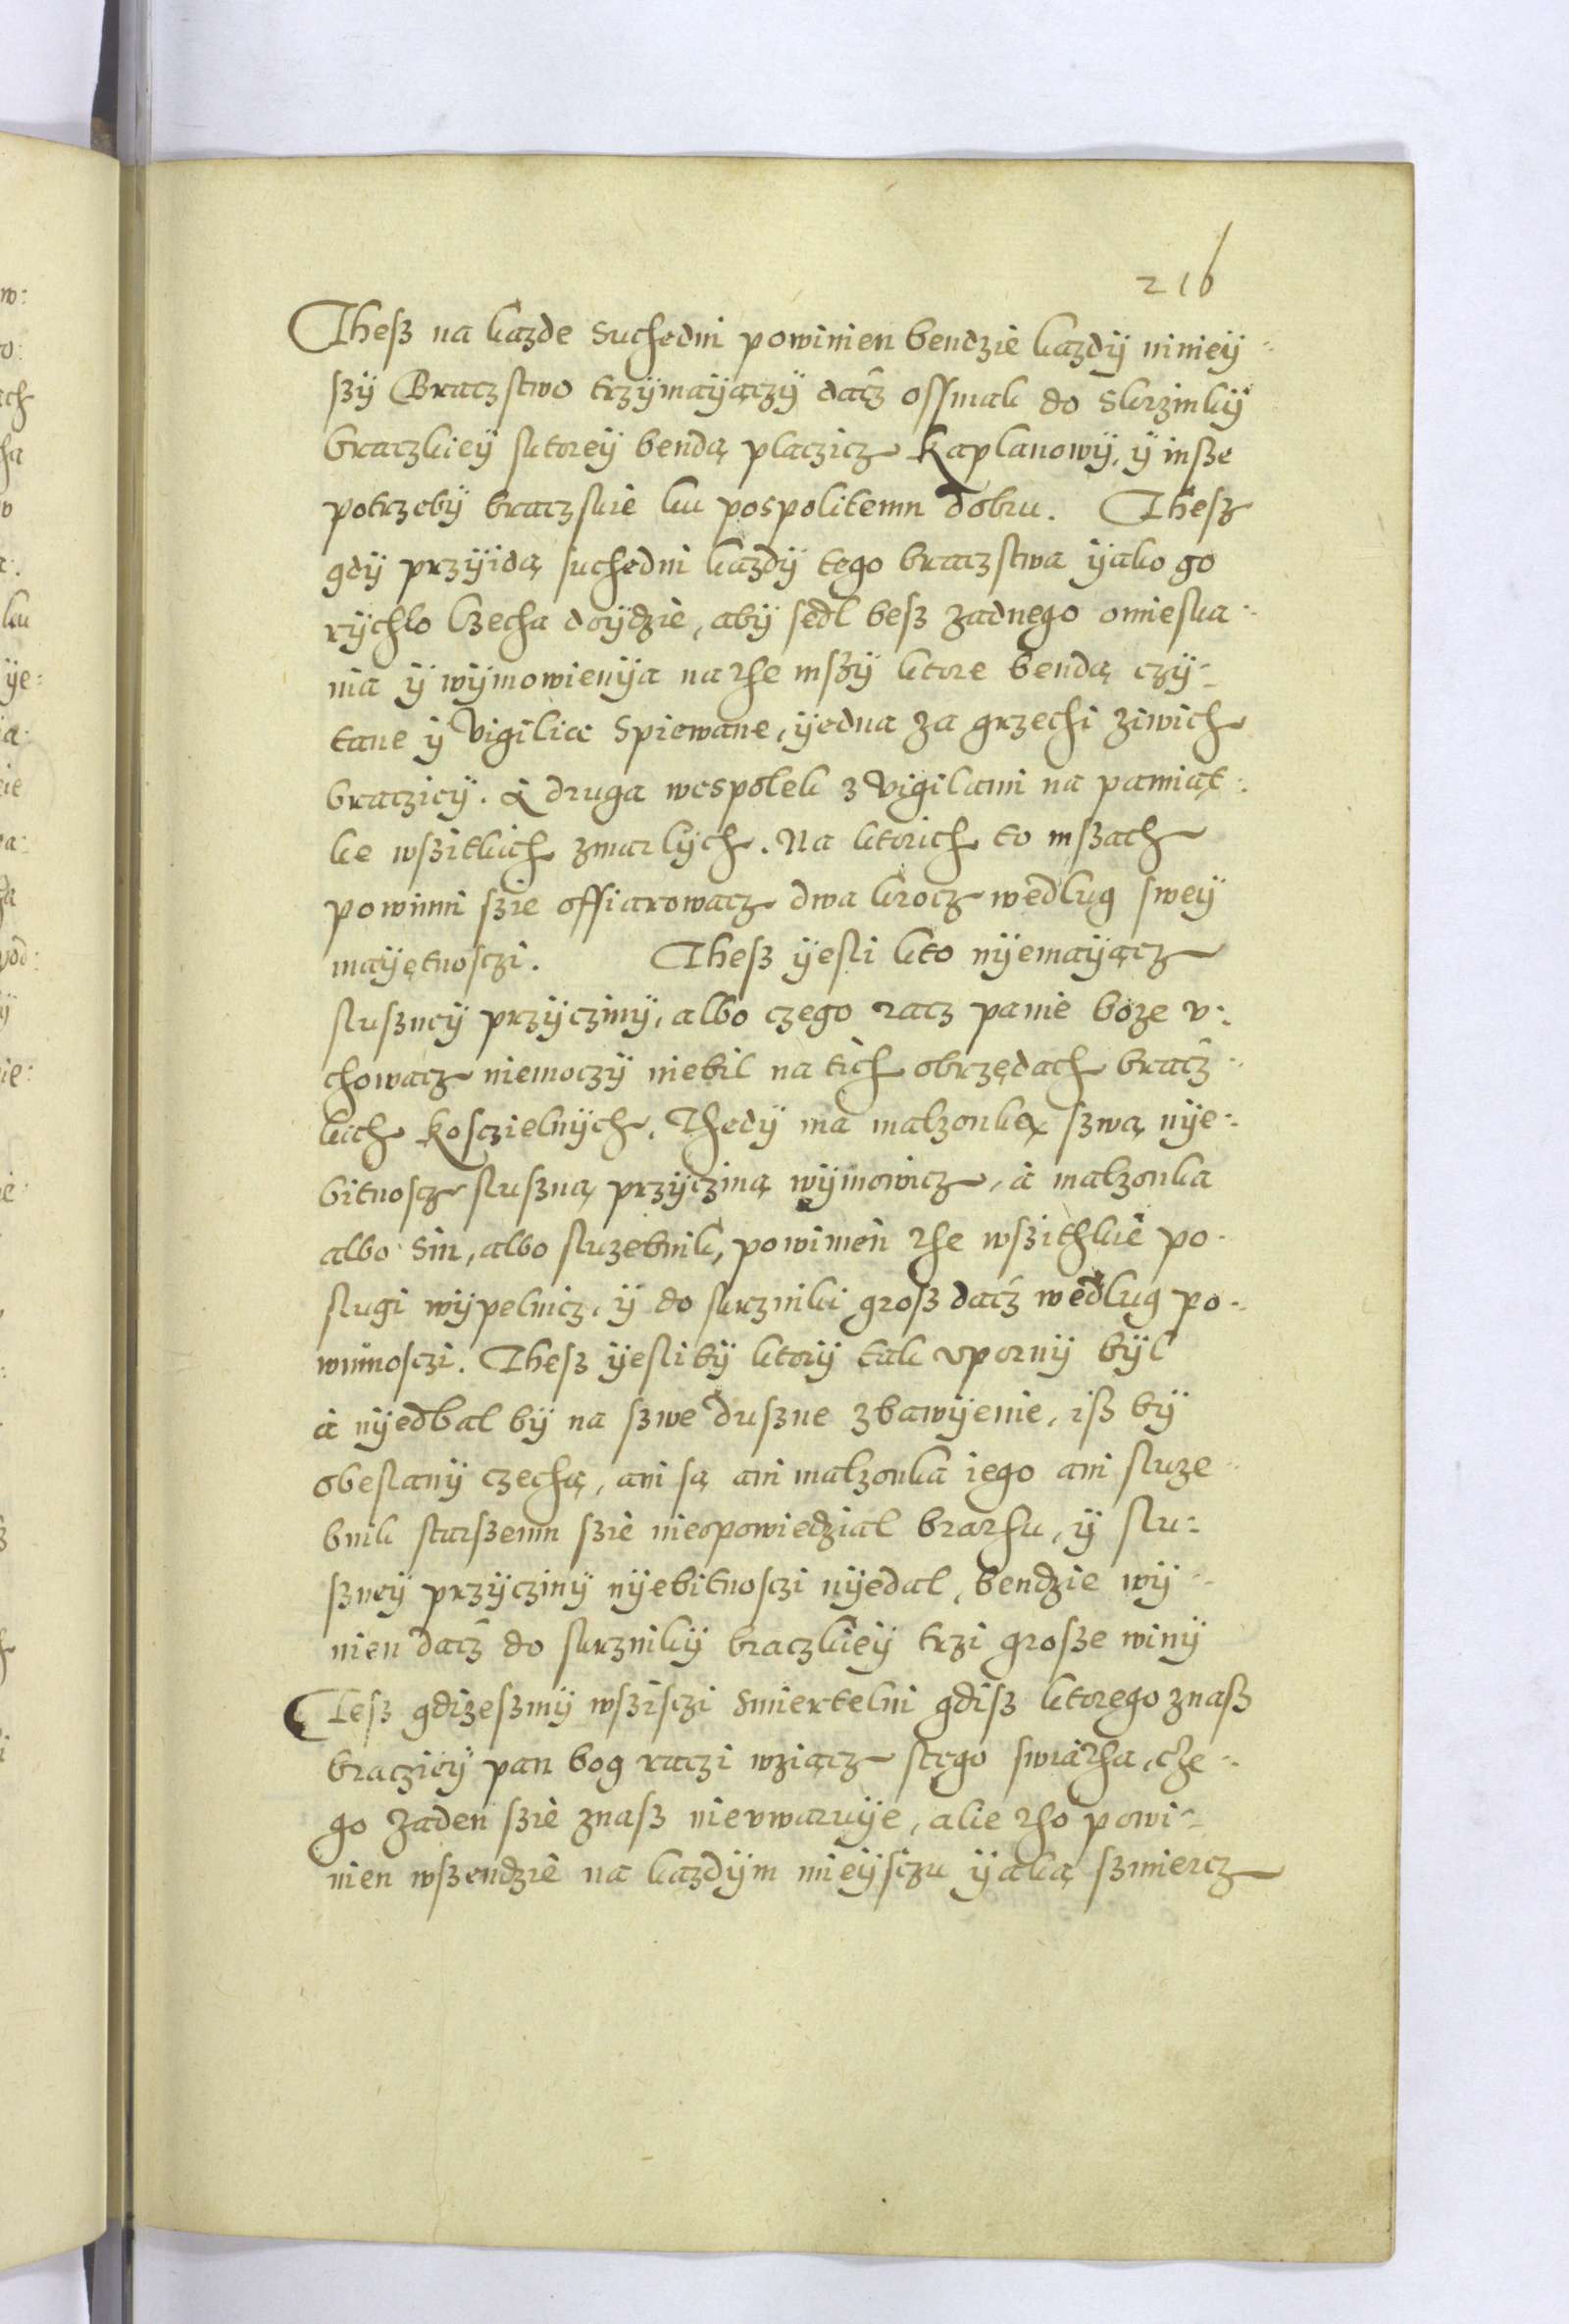 216
Thesz na kazde Suchedni powinien bendzie kazdÿ niniey
szÿ Braczstwo trzÿmaÿączÿ dacz ossmak do Skrzinkÿ
braczkieÿ sktoreÿ bendą placzicz Kaplanowÿ, ÿ insze
potrzebÿ braczskie ku pospolitemu dobru. Thesz
gdÿ przÿidą suchedni kazdÿ tego braczstwa ÿako go
rÿchlo czecha doÿdzie, abÿ sedl besz zadnego omieska:
nia ÿ wÿmowienÿa na the mszÿ ktore bendą czÿ:
tane ÿ Vigilie Spiewane, ÿedna za grzechi ziwich
braczieÿ. A druga wespolek z Vigilami na pamiąt:
ke wszitkich zmarlÿch. Na ktorich to mszach
powinni szie offiarowacz dwa krocz wedlug sweÿ
maÿętnosczi. Thesz ÿesli kto nÿemaÿącz
sluszneÿ przÿczinÿ, albo czego racz panie boze v:
chowacz niemoczÿ niebil na tich obrzędach bracz:
kich Kosczielnÿch. Thedÿ ma malzonkę szwą nÿe:
bitnoscz sluszną przÿcziną wÿmowicz, a malzonka
albo Sin, albo sluzebnik, powinien the wszithkie po-
slugi wÿpelnicz, ÿ do skrzinki grosz dacz wedlug po-
winnosczi. Thesz ÿesli bÿ ktorÿ tak vpornÿ bÿl
a nÿedbal bÿ na szwe duszne zbawÿenie, isz bÿ
obeslanÿ czechą, ani są ani malzonka iego ani sluze
bnik starszemu szie nieopowiedzial brathu, ÿ slu:
szneÿ przÿczinÿ nÿebitnosczi nÿedal, bendzie wÿ
nien dacz do skrzinkÿ braczkieÿ trzi grosze winÿ
Tesz gdizeszmÿ wszisczi Smiertelni gdisz ktorego znasz
braczieÿ pan bog raczi wziącz stego swiatha, cze-
go zaden szie znasz nievwaruÿe, alie tho powi-
nien wszendzie na kazdÿm mieÿsczu ÿaką szmiercz